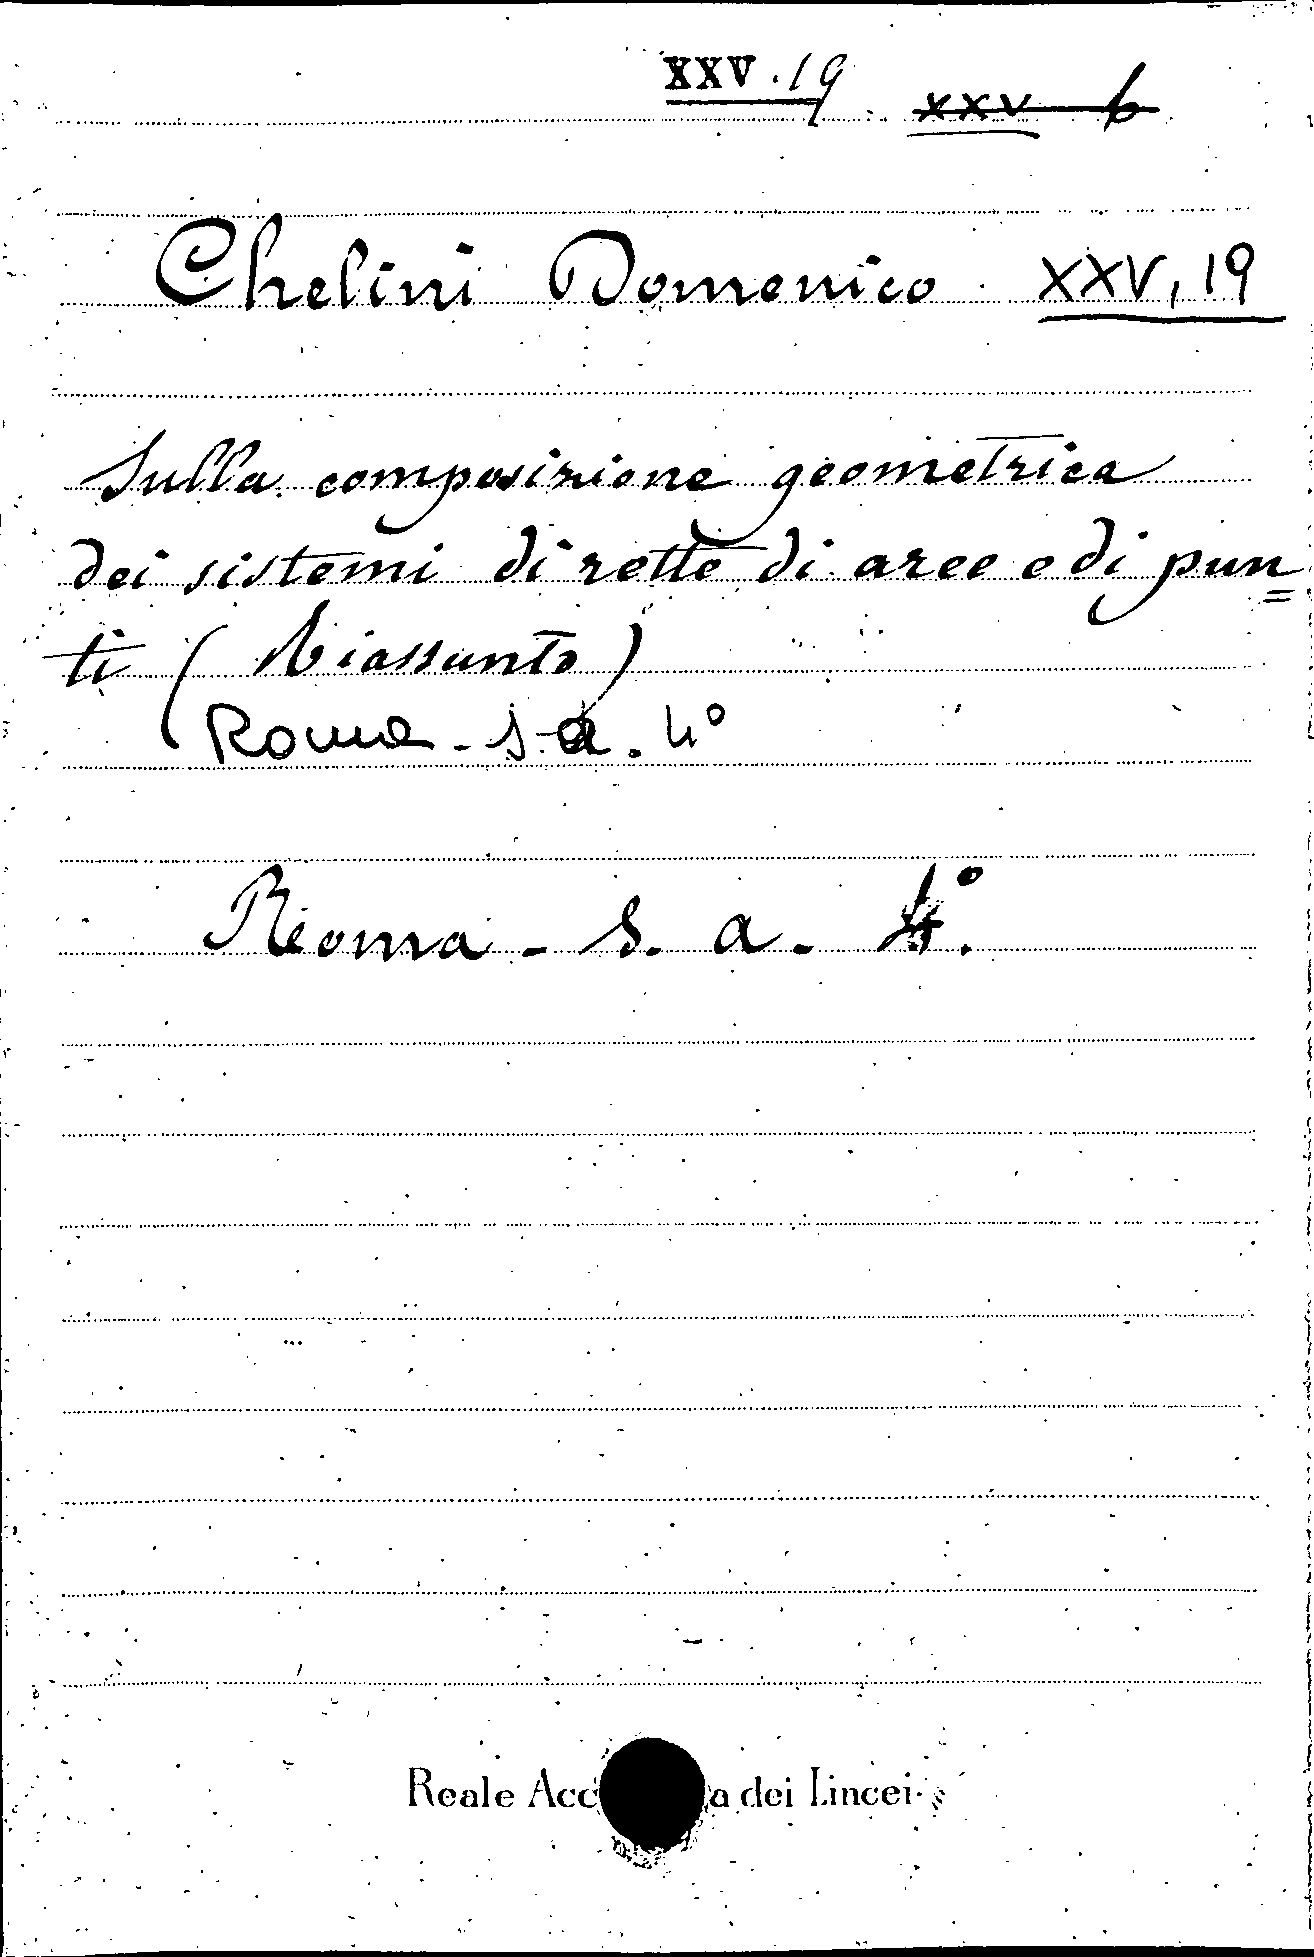 XXV.19 XXV 6
Chelini Domenico XXV, 19
Sulla composizione geometrica
dei sistemi di rette di aree e di pun=
ti (Riassunto)
Roma - s. a. 4°
Roma - s. a. 4°.
Reale Acc a dei Lincei